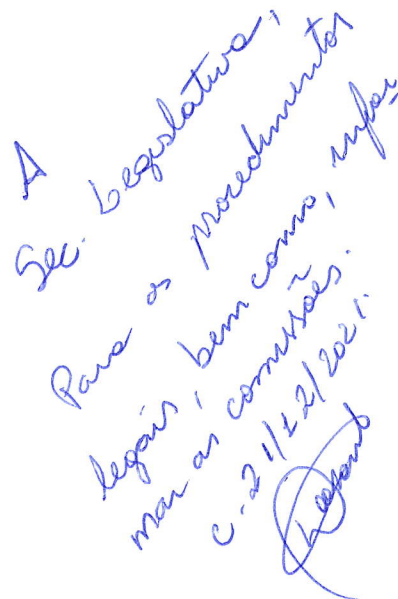 A
Sec. Legislativa,
Para os procedimentos
legais, bem como, infor
mar as comissões.
C. 21/12/2021.